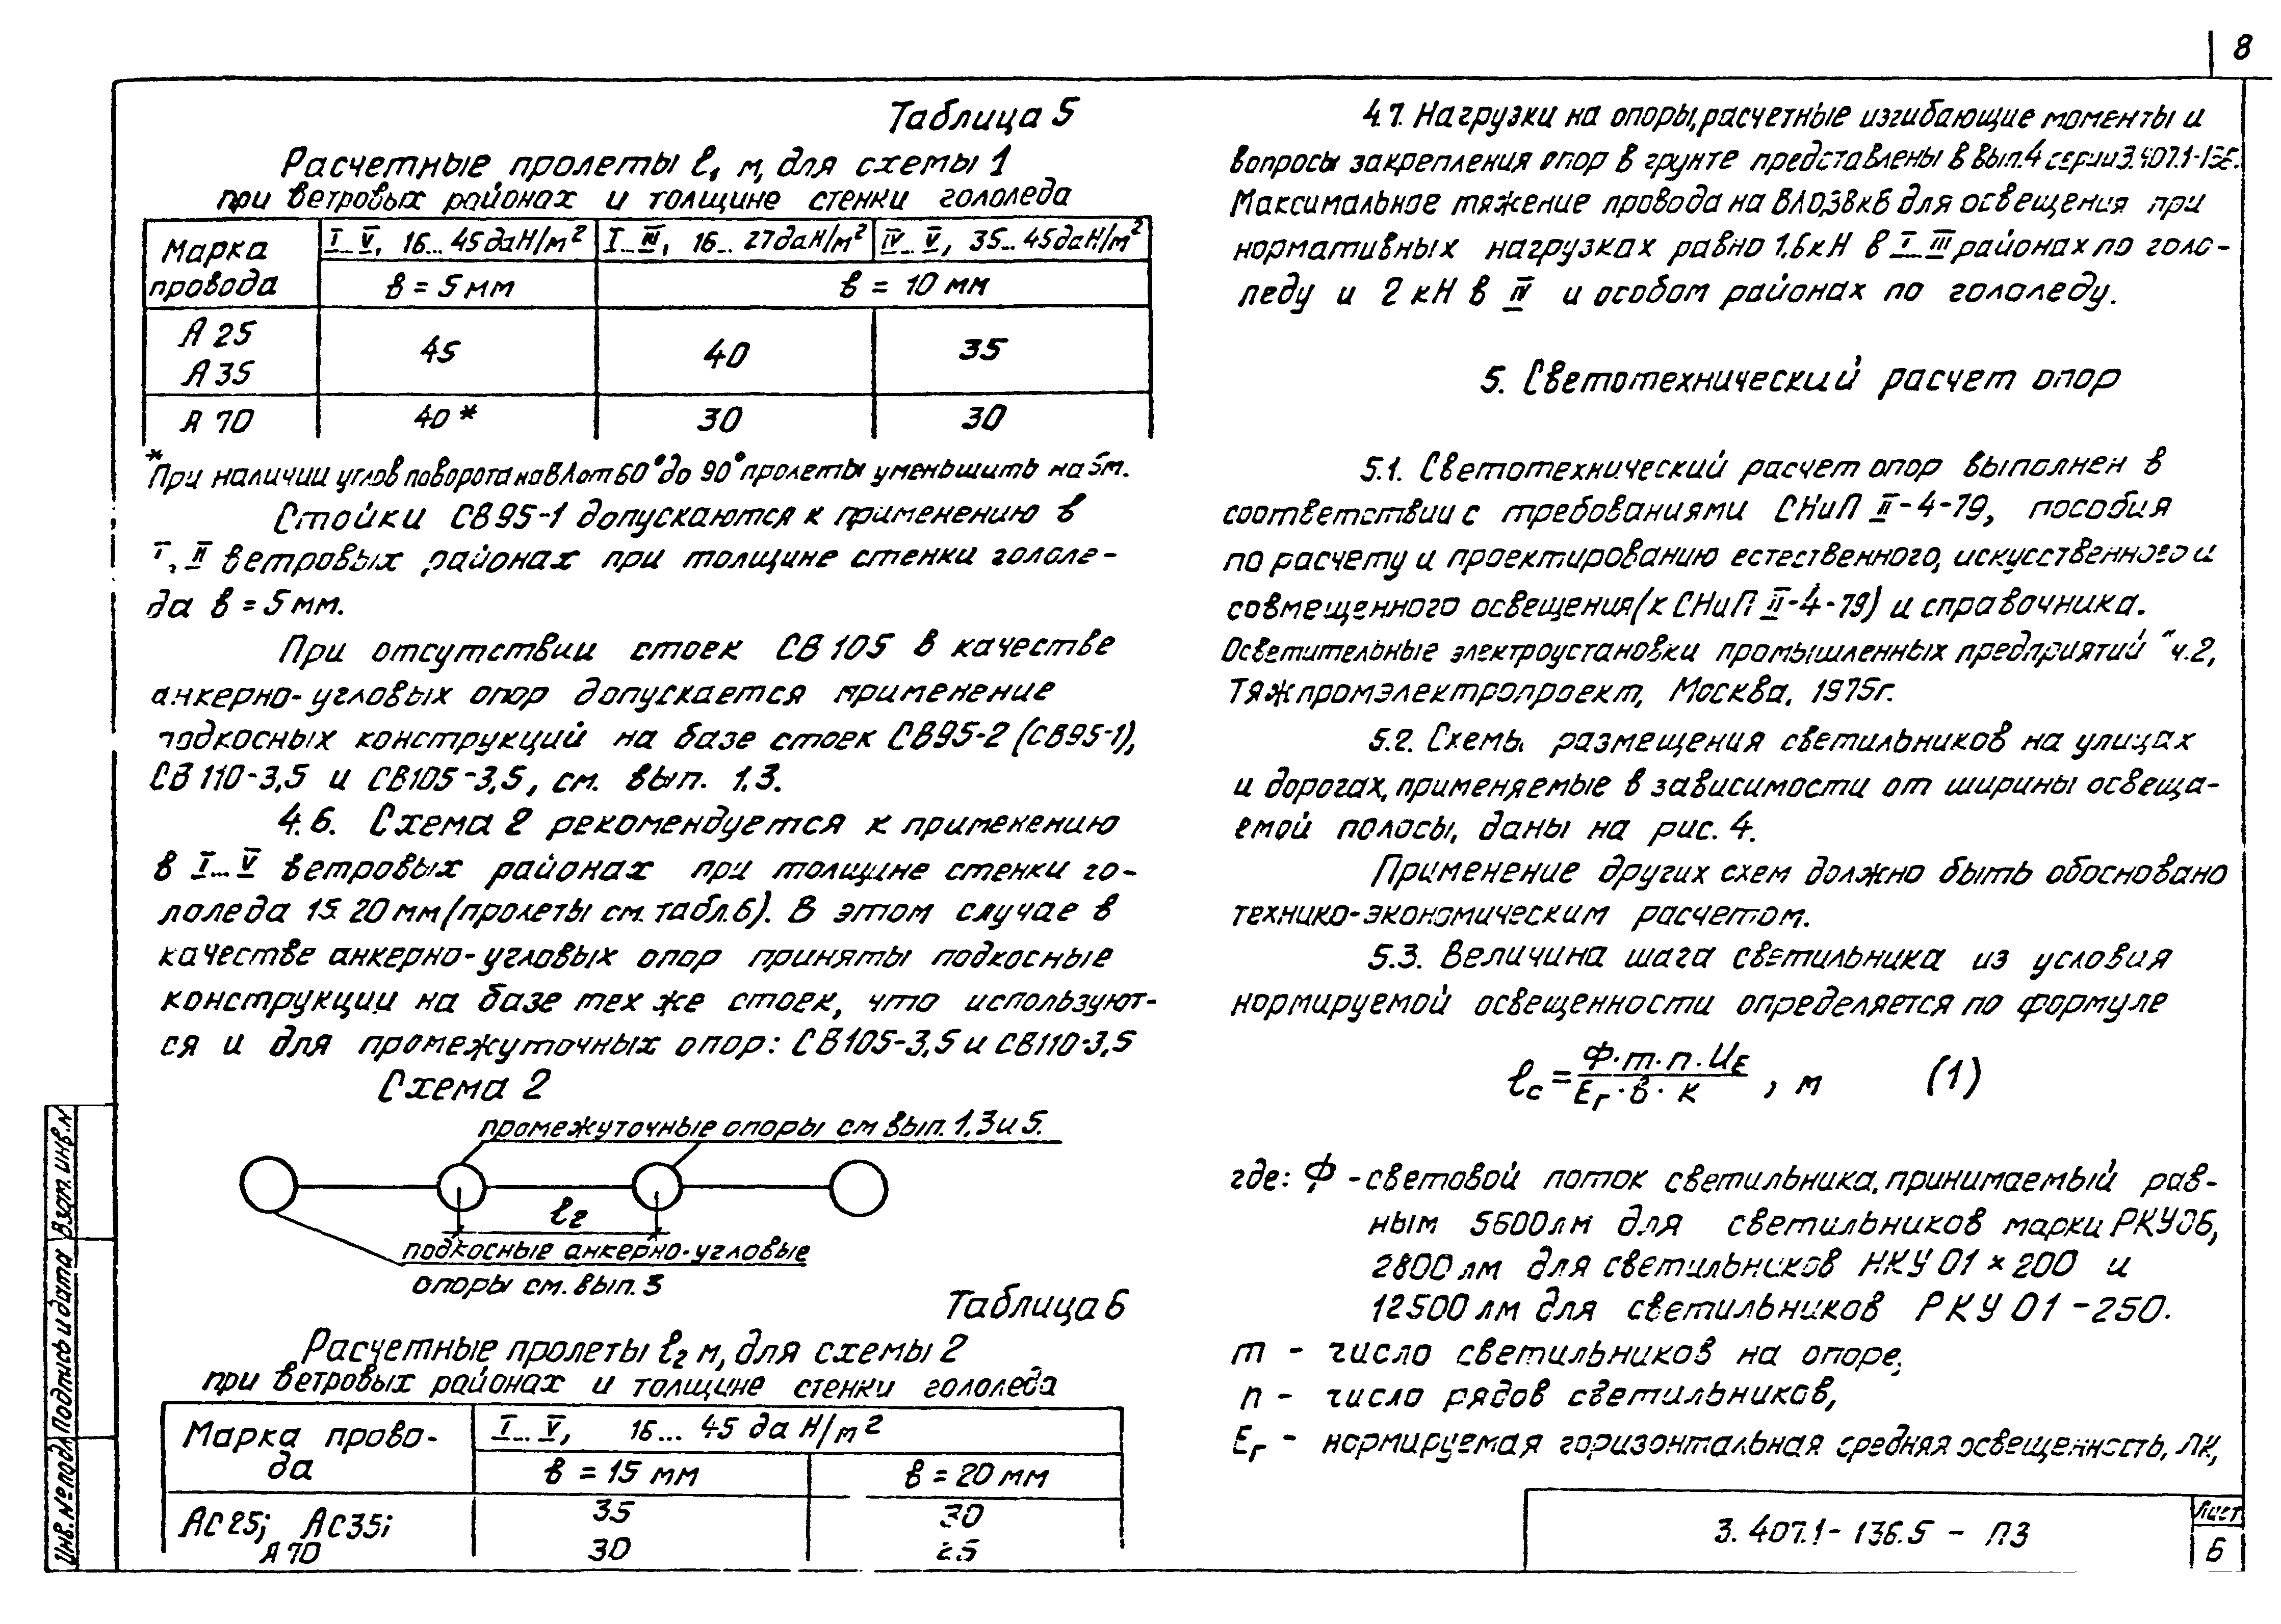 8
Таблица 5
Расчетные пролеты ℓ₁ м, для схемы 1
при ветровых районах и толщине стенки гололеда
Марка провода | I...V, 16...45 даН/м² | I...III, 16...27 даН/м² | IV...V, 35...45 даН/м²
в = 5 мм | в = 10 мм
А 25
А 35 | 45 | 40 | 35
А 70 | 40* | 30 | 30
*При наличии углов поворота на ВЛ от 60° до 90° пролеты уменьшить на 5м.
Стойки СВ95-1 допускаются к применению в
I, II ветровых районах при толщине стенки гололе-
да в = 5 мм.
При отсутствии стоек СВ 105 в качестве
анкерно-угловых опор допускается применение
подкосных конструкций на базе стоек СВ95-2 (СВ95-1),
СВ 110-3,5 и СВ105-3,5, см. вып. 1,3.
4.6. Схема 2 рекомендуется к применению
в I...V ветровых районах при толщине стенки го-
лоледа 15. 20 мм (пролеты см. табл. 6). В этом случае в
качестве анкерно-угловых опор приняты подкосные
конструкции на базе тех же стоек, что используют-
ся и для промежуточных опор: СВ105-3,5 и СВ110-3,5
Схема 2
промежуточные опоры см вып. 1,3 и 5.
ℓ₂
подкосные анкерно-угловые
опоры см. вып. 3
Таблица 6
Расчетные пролеты ℓ₂ м, для схемы 2
при ветровых районах и толщине стенки гололеда
Марка прово-
да | I...V, 16... 45 даН/м²
в = 15 мм | в = 20 мм
АС25; АС35; | 35 | 30
А 70 | 30 | 25
4.7. Нагрузки на опоры, расчетные изгибающие моменты и
вопросы закрепления опор в грунте представлены в вып. 4 серии 3.407.1-136.
Максимальное тяжение провода на ВЛ 0,38 кВ для освещения при
нормативных нагрузках равно 1.6 кН в I...III районах по голо-
леду и 2 кН в IV и особом районах по гололеду.
5. Светотехнический расчет опор
5.1. Светотехнический расчет опор выполнен в
соответствии с требованиями СНиП II-4-79, пособия
по расчету и проектированию естественного, искусственного и
совмещенного освещения (к СНиП II-4-79) и справочника.
Осветительные электроустановки промышленных предприятий" ч.2,
Тяжпромэлектропроект, Москва, 1975г.
5.2. Схемы размещения светильников на улицах
и дорогах, применяемые в зависимости от ширины освеща-
емой полосы, даны на рис. 4.
Применение других схем должно быть обосновано
технико-экономическим расчетом.
5.3. Величина шага светильника из условия
нормируемой освещенности определяется по формуле
ℓс = Ф·т·п·ИЕ / Ег·в·к , м (1)
где: Ф - световой поток светильника, принимаемый рав-
ным 5600 лм для светильников марки РКУ06,
2800 лм для светильников НКУ 01×200 и
12500 лм для светильников РКУ 01-250.
т - число светильников на опоре,
п - число рядов светильников,
Ег - нормируемая горизонтальная средняя освещенность, лк,
Инв. № подл. Подпись и дата Взам. инв. №
3.407.1-136.5 - ПЗ
Лист
6